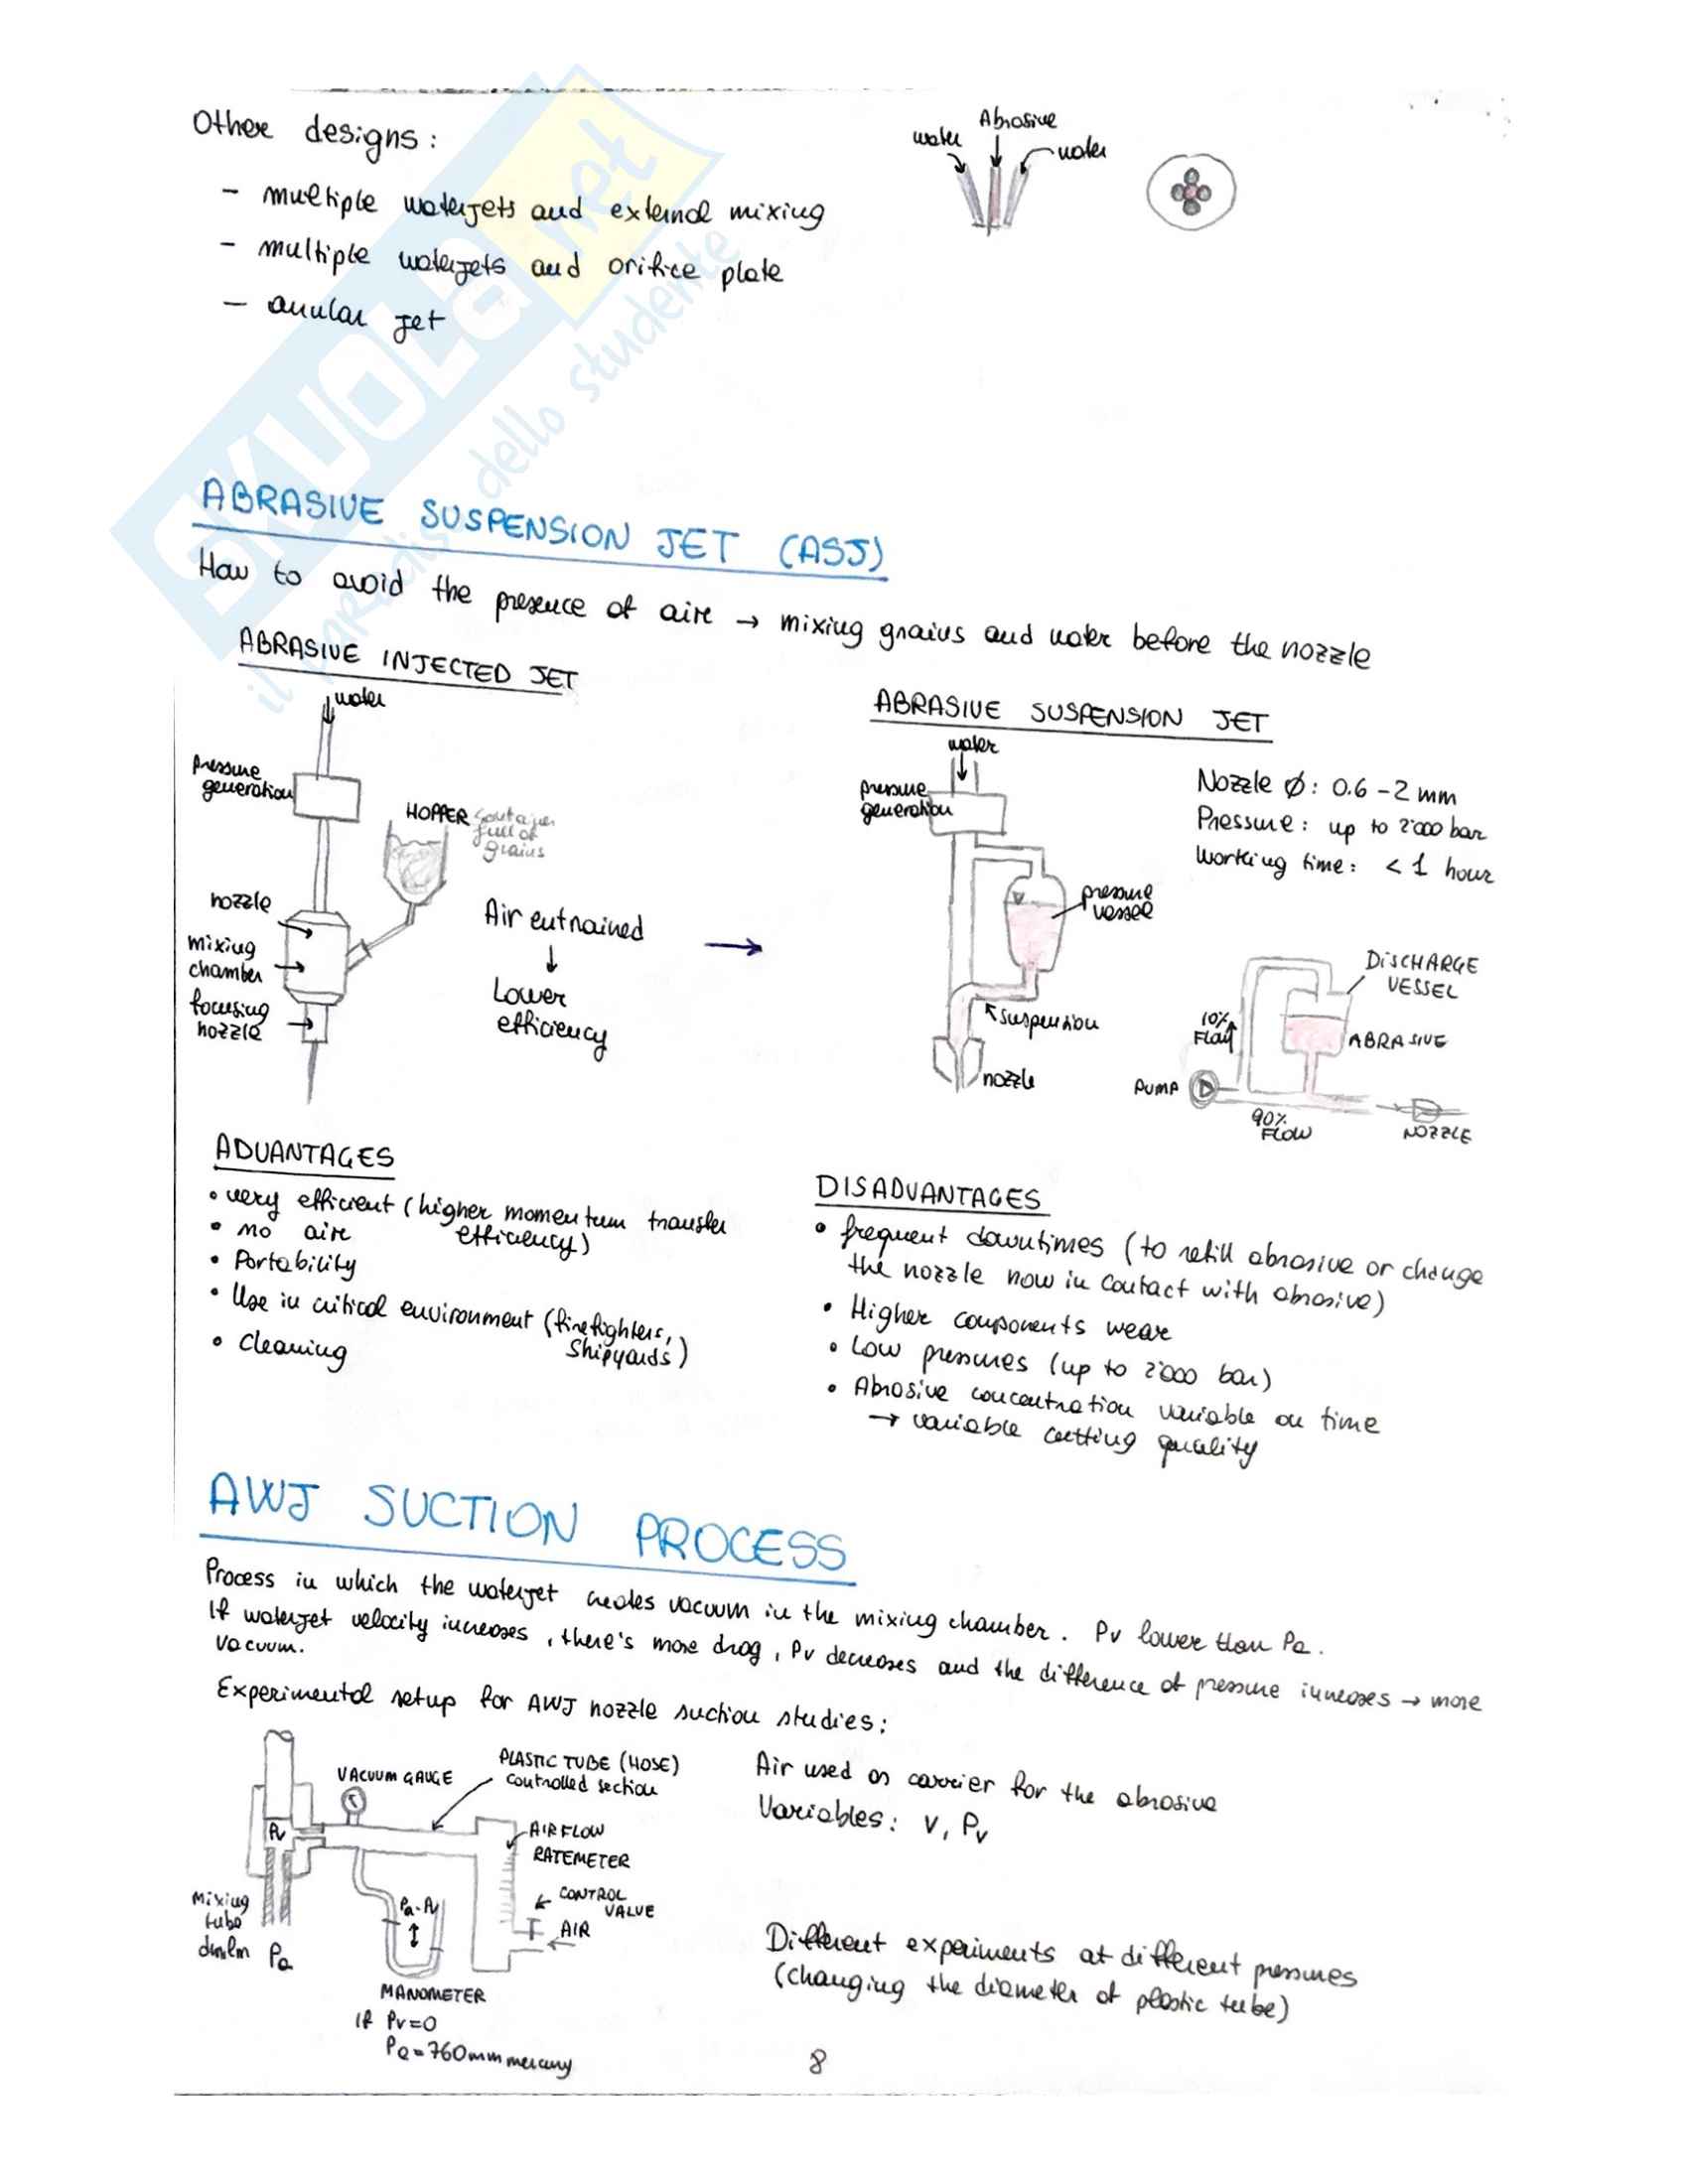 Other designs:
- multiple waterjets and external mixing
- multiple waterjets and orifice plate
- anular jet
water
Abrasive
water
SKUOLA.net
dello studente
ABRASIVE SUSPENSION JET (ASJ)
How to avoid the presence of aire → mixing grains and water before the nozzle
ABRASIVE INJECTED JET
water
pressure
generation
HOPPER
full of
grains
nozzle
mixing
chamber
focusing
nozzle
Air entrained
↓
Lower
efficiency
→
ABRASIVE SUSPENSION JET
water
pressure
generation
pressure
vessel
suspension
nozzle
Nozzle Ø: 0.6 - 2 mm
Pressure: up to 2'000 bar
Working time: < 1 hour
DISCHARGE
VESSEL
10%
FLOW
ABRASIVE
PUMP
90%
FLOW
NOZZLE
ADVANTAGES
• very efficient (higher momentum transfer
efficiency)
• no aire
• Portability
• Use in critical environment (firefighters,
shipyards)
• Cleaning
DISADVANTAGES
• frequent downtimes (to refill abrasive or change
the nozzle now in contact with abrasive)
• Higher components wear
• Low pressures (up to 2'000 bar)
• Abrasive concentration variable on time
→ variable cutting quality
AWJ SUCTION PROCESS
Process in which the waterjet creates vacuum in the mixing chamber. Pv lower than Pa.
If waterjet velocity increases, there's more drag, Pv decreases and the difference of pressure increases → more
vacuum.
Experimental setup for AWJ nozzle suction studies:
VACUUM GAUGE
PLASTIC TUBE (HOSE)
controlled section
Pv
AIR FLOW
RATEMETER
CONTROL
VALVE
AIR
Pa-Pv
Mixing
tube
Pa
MANOMETER
if Pv=0
Pa=760mm mercury
Air used as carrier for the abrasive
Variables: v, Pv
Different experiments at different pressures
(changing the diameter of plastic tube)
8